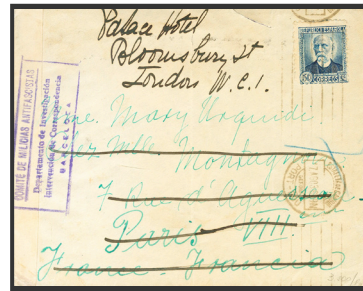 Palace Hotel
Bloomsbury St
London W.C.1.
REPUBLICA ESPAÑOLA
CORREOS
COMITÉ DE MILICIAS ANTIFASCISTAS
Departamento de Investigación
Intervención de Correspondencia
BARCELONA
Mary Urquidi
chez Mlle Montagne
7 Rue d'Aguesseau
Paris VIII
France - Francia